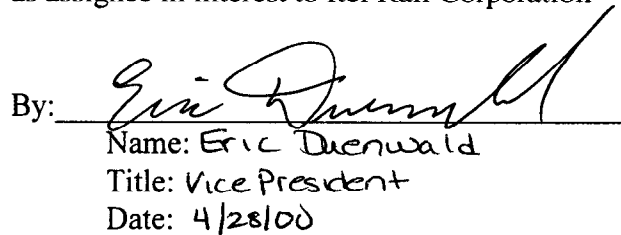 as assignee in interest to Itel Rail Corporation
By: Eric Duenwald
Name: Eric Duenwald
Title: Vice President
Date: 4/28/00